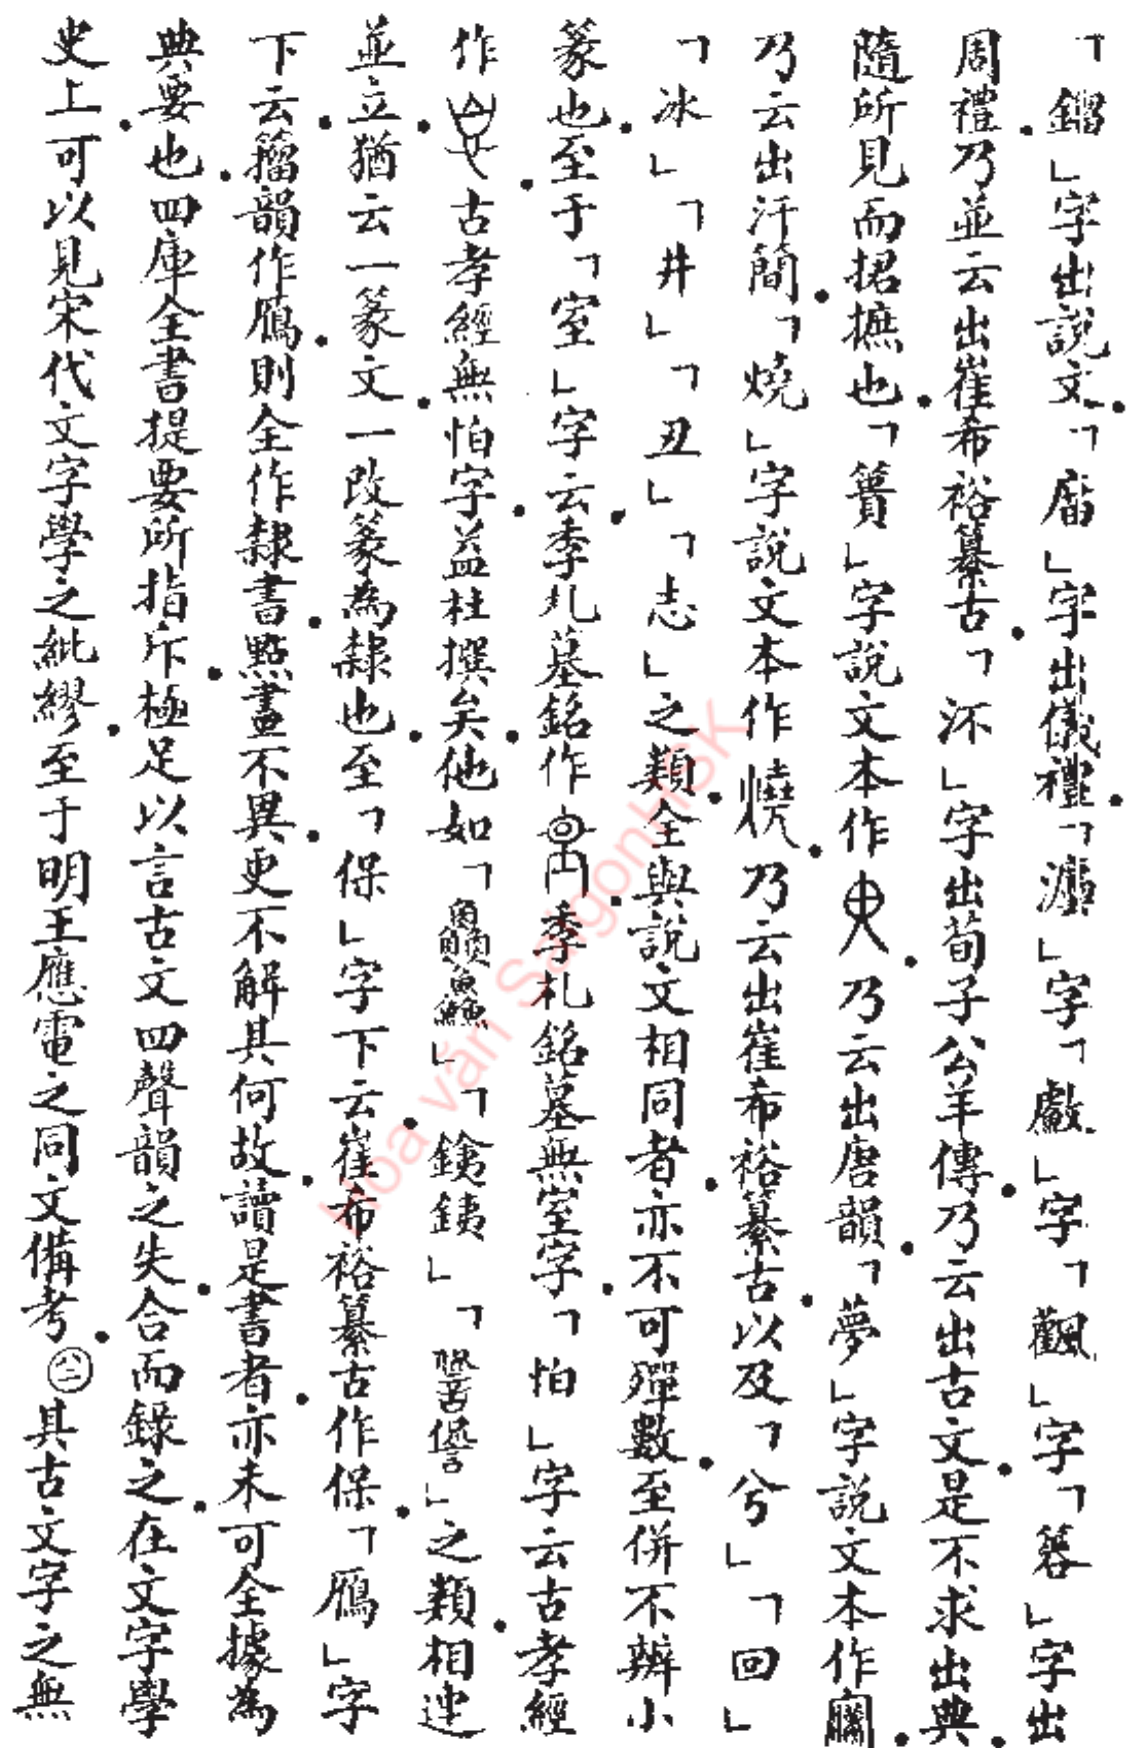 「鐂」字出說文。「庿」字出儀禮。「灋」字「戲」字「飌」字「簭」字出
周禮。乃並云出崔希裕纂古。「沠」字出荀子公羊傳。乃云出古文。是不求出典。
隨所見而捃摭也。「簣」字說文本作 乃云出唐韻。「夢」字說文本作
乃云出汗簡。「燒」字說文本作燒。乃云出崔希裕纂古。以及「兮」「回」
「冰」「井」「丑」「志」之類。全與說文相同者。亦不可殫數。至併不辨小
篆也。至于「室」字云。季札墓銘作 。季札銘墓無室字。「怕」字云古孝經
作 。古孝經無怕字。益杜撰矣。他如「 」「銕銕」「 」之類。相連
並立。猶云一篆文。一改篆為隸也。至「保」字下云。崔希裕纂古作保。「鴈」字
下云。籀韻作鴈。則全作隸書。點畫不異。更不解其何故。讀是書者。亦未可全據為
典要也。四庫全書提要所指斥。極足以言古文四聲韻之失。合而錄之。在文字學
史上。可以見宋代文字學之紕繆。至于明王應電之同文備考。㊇其古文字之無
Hoa văn SaigonHSK